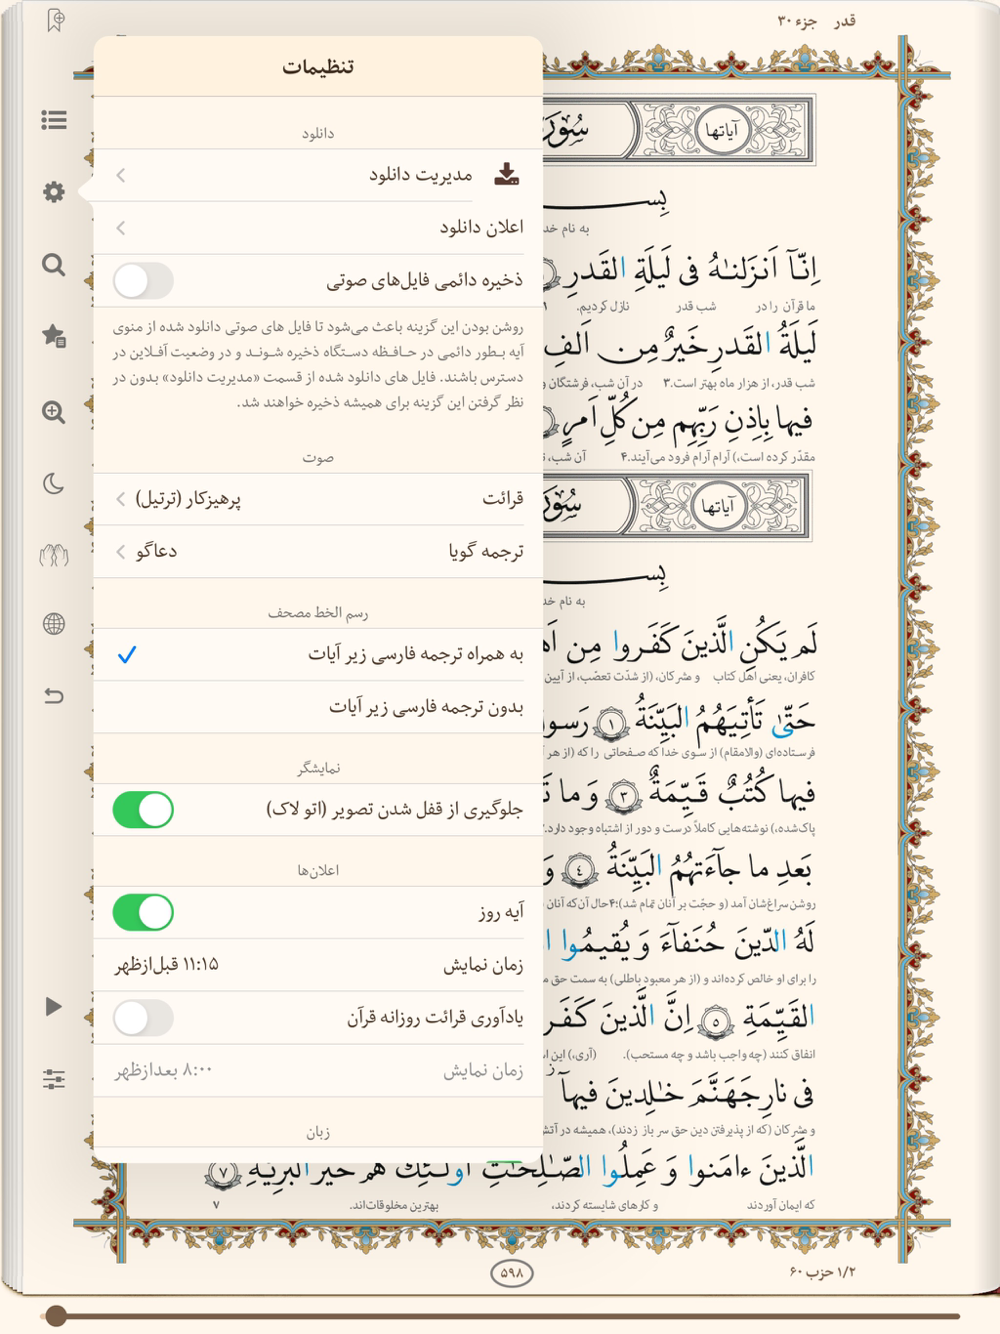 قدر جزء ۳۰
تنظیمات
دانلود
مدیریت دانلود
اعلان دانلود
ذخیره دائمی فایل‌های صوتی
روشن بودن این گزینه باعث می‌شود تا فایل های صوتی دانلود شده از منوی
آیه بـطور دائمی در حـافـظه دسـتگاه ذخیره شـونـد و در وضعیت آفـلاین در
دسترس باشند. فایل های دانلود شده از قسمت «مدیریت دانلود» بدون در
نظر گرفتن این گزینه برای همیشه ذخیره خواهند شد.
صوت
قرائت پرهیزکار (ترتیل)
ترجمه گویا دعاگو
رسم الخط مصحف
به همراه ترجمه فارسی زیر آیات
بدون ترجمه فارسی زیر آیات
نمایشگر
جلوگیری از قفل شدن تصویر (اتو لاک)
اعلان‌ها
آیه روز
زمان نمایش ۱۱:۱۵ قبل‌ازظهر
یادآوری قرائت روزانه قرآن
زمان نمایش ۸:۰۰ بعدازظهر
زبان
آیاتها
به نام خد
اِنّـآ اَنزَلنـٰهُ فی لَیلَةِ القَدرِ
ما قرآن را در شب قدر نازل کردیم. ۱
لَیلَةُ القَدرِ خَیرٌ مِن اَلفِ
شب قدر، از هزار ماه بهتر است.۳ در آن شب، فرشتگان و
فیها بِاِذنِ رَبِّهِم مِن کُلِّ اَمرٍ
مقدّر کرده است،) آرام آرام فرود می‌آیند.۴ آن شب،
آیاتها
به نام خد
لَم یَکُنِ الَّذینَ کَفَروا مِن
کافران، یعنی اهل کتاب و مشرکان، (از شدّت تعصّب، از آیین
حَتّیٰ تَأتِیَهُمُ البَیِّنَةُ ١ رَسو
فرستاده‌ای (والامقام) از سوی خدا که صفحاتی را که (از هر
فیها کُتُبٌ قَیِّمَةٌ ٣ وَ ما
پاک‌شده،) نوشته‌هایی کاملاً درست و دور از اشتباه وجود دارد.
بَعدِ ما جآءَتهُمُ البَیِّنَةُ ٤ وَ
روشن سراغ‌شان آمد (و حجّت بر آنان تمام شد)؛۴ حال آن‌که آنان
لَهُ الدّینَ حُنَفآءَ وَ یُقیمُوا ا
را برای او خالص کرده‌اند و (از هر معبود باطلی) به سمت حق
القَیِّمَةِ ٥ اِنَّ الَّذینَ کَفَر
انفاق کنند (چه واجب باشد و چه مستحب). (آری،) این
فی نارِ جَهَنَّمَ خـٰلِدینَ فیهآ
و مشرکان (که از پذیرفتن دین حق سر باز زدند)، همیشه در آتش
الَّذینَ ءامَنوا وَ عَمِلُوا الصّـٰلِحـٰتِ اُولـٰئِکَ هُم خَیرُ البَرِیَّةِ ٧
که ایمان آوردند و کارهای شایسته کردند، بهترین مخلوقات‌اند. ۷
۱/۲ حزب ۶۰
۵۹۸